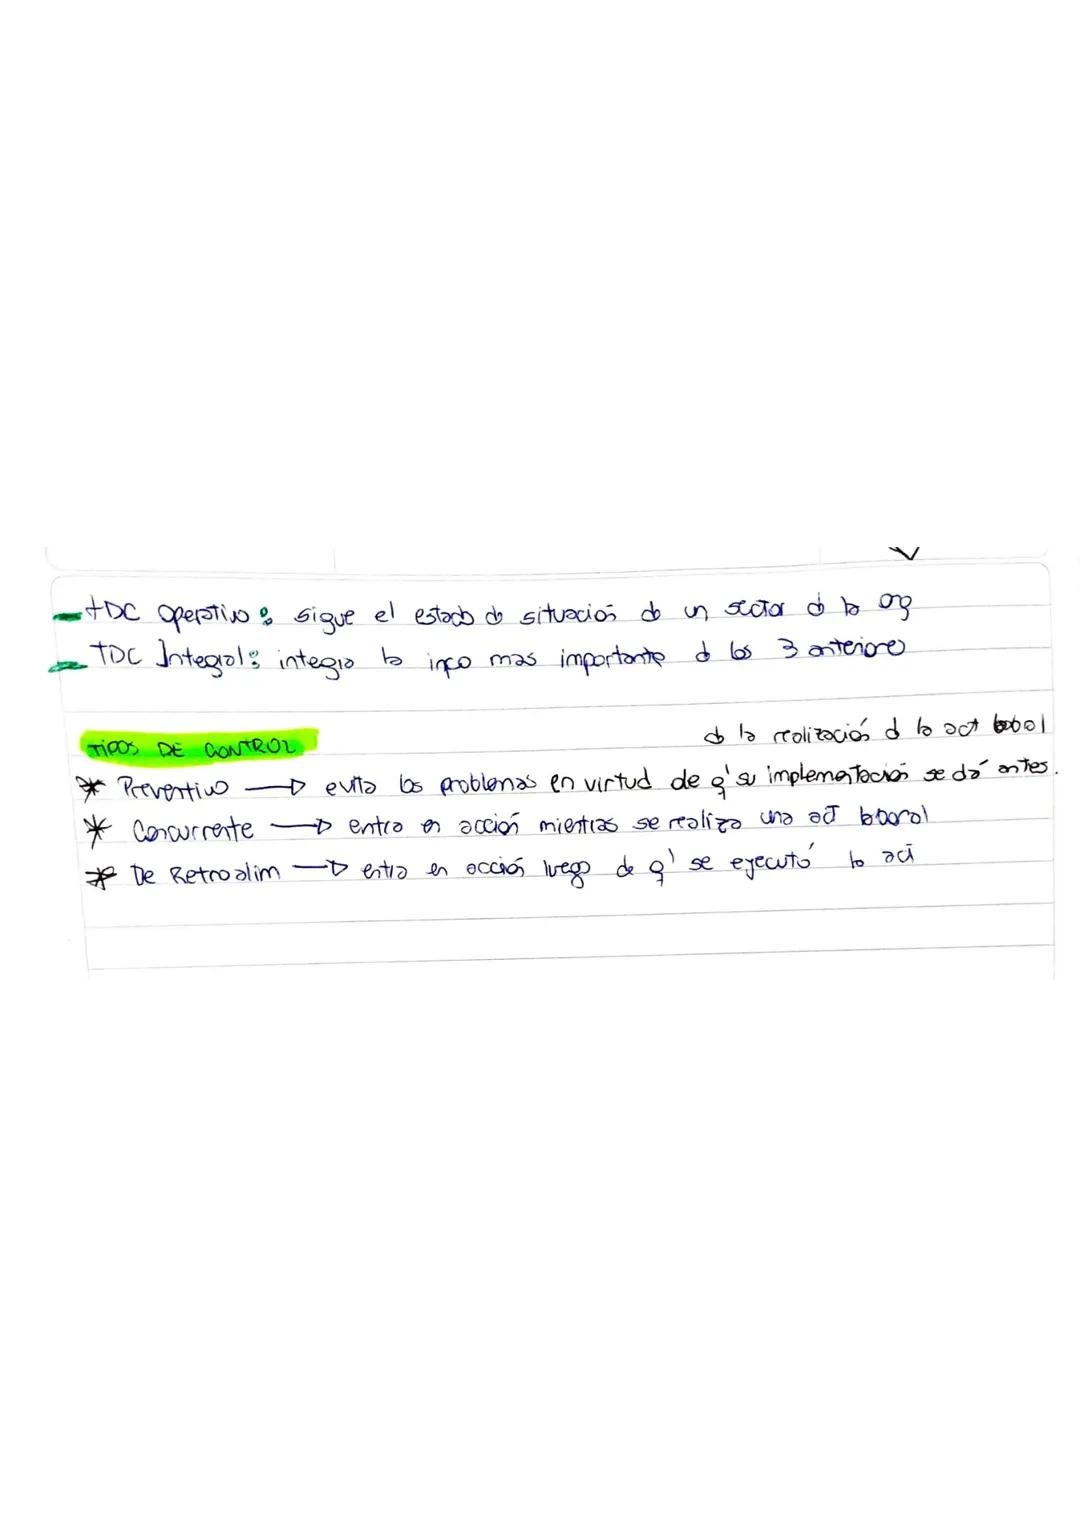 - TDC Operativo: sigue el estado de situación de un sector d la org
- TDC Integral: integra la info mas importante d los 3 anteriores
TIPOS DE CONTROL
d la realización d la act laboral
* Preventivo → evita los problemas en virtud de q' su implementación se dá antes.
* Concurrente → entra en acción mientras se realiza una act laboral
* De Retroalim → entra en acción luego de q' se ejecutó la act